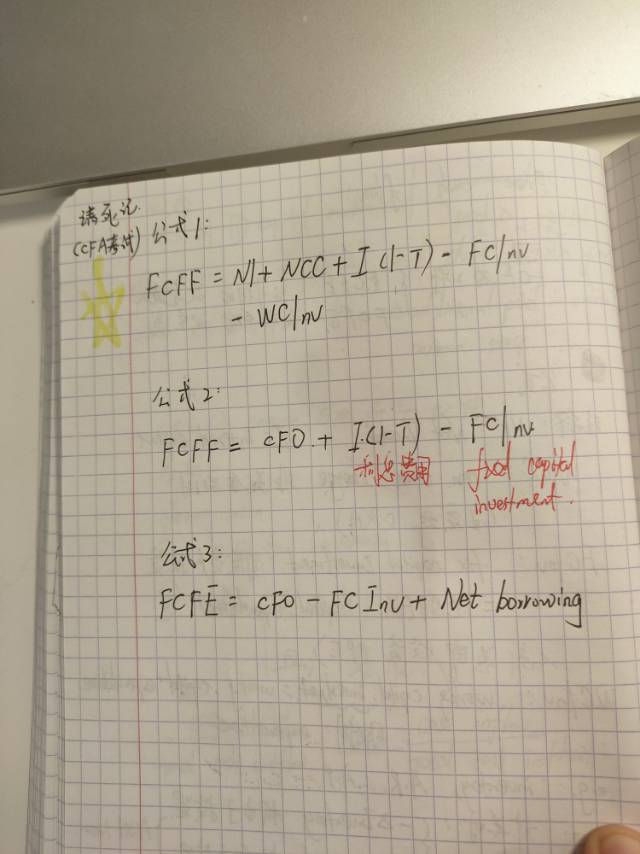 请死记
(CFA考试)
公式1:
FCFF = NI + NCC + I (1-T) - FCInv
- WCInv
公式2:
FCFF = CFO + I.(1-T) - FCInv
利息费用 fixed capital
investment.
公式3:
FCFE = CFO - FCInv + Net borrowing